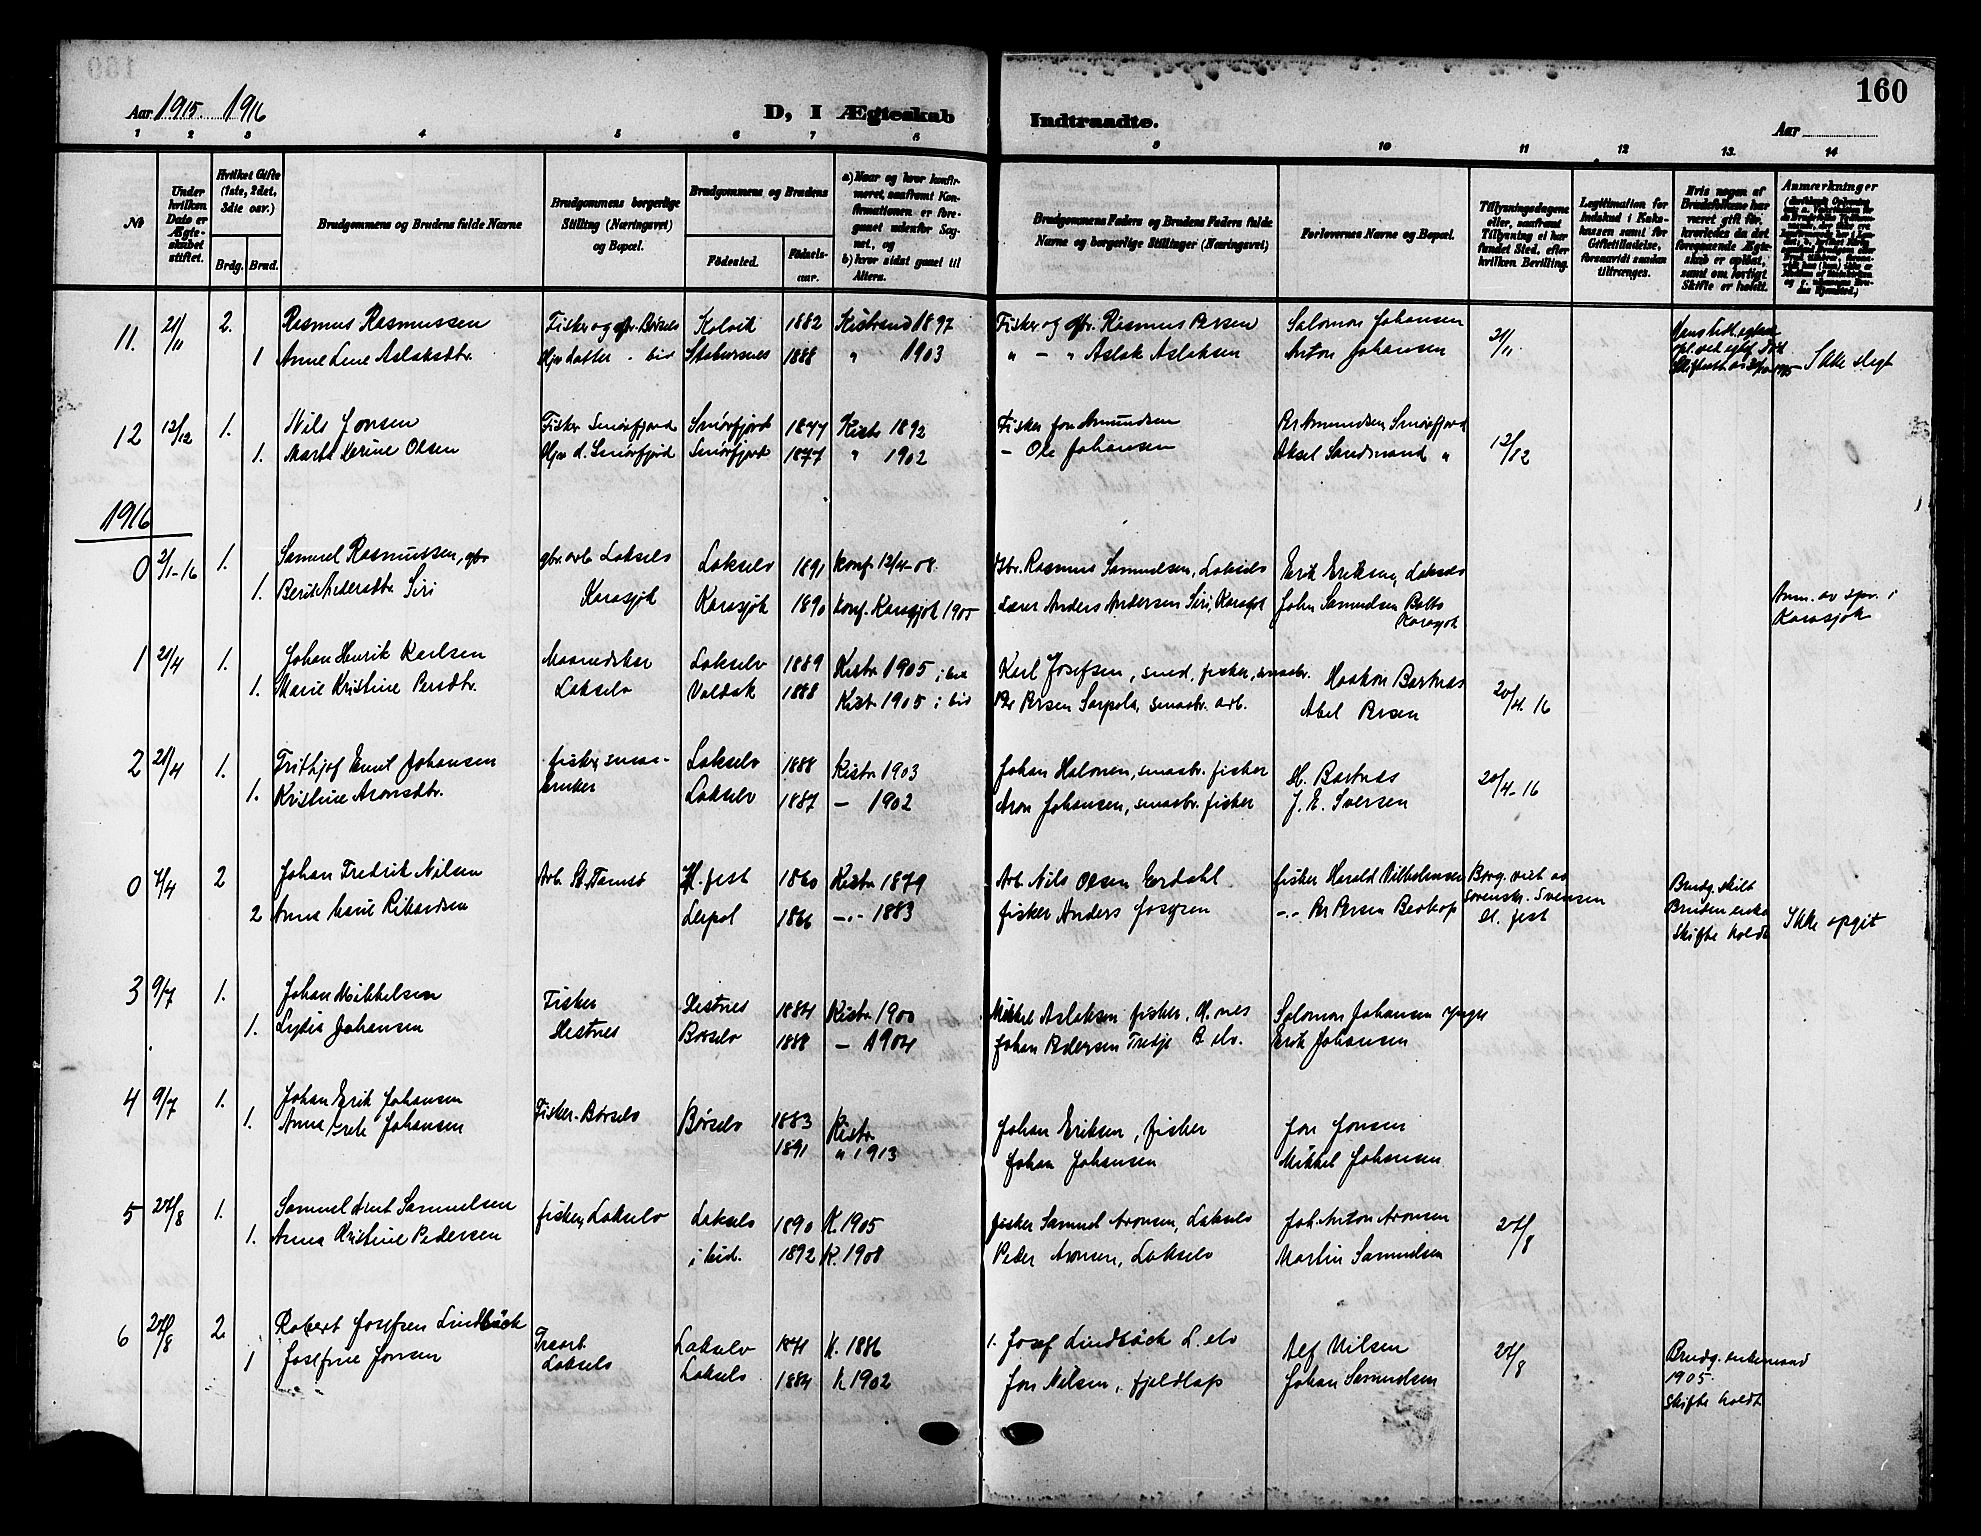 160
Aar 1915. 1916
D, I Ægteskab
Indtraadte.
Aar
1 2 3 4 5 6 7 8
9 10 11 12 13. 14
№
Under hvilken Dato er Ægteskabet stiftet.
Hvilket Gifte (1ste, 2det, 3die osv.)
Brdg. Brud.
Brudgommens og Brudens fulde Navne
Brudgommens borgerlige Stilling (Næringsvei) og Bopæl.
Brudgommens og Brudens
Fødested. Fødselsaar.
a) Naar og hvor konfirmeret, saafremt Konfirmationen er foregaaet udenfor Sognet, og
b) hvor sidst gaaet til Alters.
Brudgommens Faders og Brudens Faders fulde Navne og borgerlige Stillinger (Næringsvei)
Forlovernes Navne og Bopæl.
Tillysningsdagene eller, saafremt Tillysning ei har fundet Sted, efter hvilken Bevilling.
Legitimation for Indskud i Enkekassen samt for Giftetilladelse, forsaavidt saadan tiltrænges.
Hvis nogen af Brudefolkene har været gift før, hvorledes da det foregaaende Ægteskab er opløst, samt om lovligt Skifte er holdt.
Anmærkninger
11. 21/11 2. Rasmus Rasmussen Fisker og gbr. Børselv Kolvik 1882 Kistrand 1897 Fisker og gbr. Rasmus Persen Salomon Johansen 21/11
1 Anne Lene Aslaksdtr. Stabursnes 1888 " 1903 " - " Aslak Aslaksen Anton Johansen Ikke slegt
12 12/12 1. Nils Jonsen Fisker Smörfjord Smörfjord 1877 Kistr 1892 Fisker Jon Amundsen Per Amundsen Smörfjord 12/12
1. Marit Serine Olsen Smörfjord Smörfjord 1877 " 1902 - Ole Johansen Aksel Sandmand "
1916
0 2/1-16 1. Samuel Rasmussen, gbr gbr. arb Lakselv Lakselv 1891 konf 12/4-08. Gbr. Rasmus Samuelsen, Lakselv Erik Eriksen, Lakselv
1. Berit Andersdtr. Siri Karasjok Karasjok 1890 konf. Karasjok 1905 Lærer Anders Andersen Siri, Karasjok John Samuelsen Balto Karasjok Anm. av spr. i Karasjok
1 21/4 1. Johan Henrik Karlsen Lakselv 1889 Kistr 1905 ; bid Karl Josefsen, smed, fisker, smaabr. Haakon Bartnæs 20/4. 16
1. Marie Kristine Persdtr. Lakselv Valdak 1888 Kistr 1905 ; bid Per Persen Sarpola, smaabr. arb. Abel Persen
2 21/4 1. Frithjof Emil Johansen fisker, smaa- Lakselv 1888 Kistr 1903 Johan Halonen, smaabr. fisker H. Bartnæs 20/4-16
1. Kristine Aronsdtr. bruker Lakselv 1887 - 1902 Aron Johansen, smaabr. fisker J. E. Iversen
0 7/4 2 Johan Fredrik Nilsen Arb. St. Tamsö H.fest 1860 Kistr 1879 Arb. Nils Olsen Erdahl fisker Harald Vilhelmsen Borg. viet av Brudg. skilt
2 Anna Marie Rikardsen Leipol 1866 -"- 1883 fisker Anders -"- Per Persen sorenskr. Svensen H. fest Bruden enke skifte holdt Ikke opgit
3 9/7 1. Johan Mikkelsen Fisker Hestnes 1884 Kistr 1900 Mikkel Aslaksen fisker, H.nes Salomon Johansen yngre
1. Lydia Johansen Hestnes Børselv 1888 - 1904 Johan Pedersen Tredje B elv. Erik Johansen
4 9/7 1. Johan Erik Johansen Fisker. Børselv Børselv 1883 Kistr Johan Eriksen, fisker Jon Jonsen
1. Anna Grete Johansen 1891 " 1913 Johan Johansen Mikkel Johansen
5 27/8 1. Samuel Arnt Samuelsen fisker, Lakselv Lakselv 1890 K. 1905 fisker Samuel Aronsen, Lakselv Joh. Anton Aronsen 27/8
1. Anna Kristine Pedersen ibid. 1892 K. 1908 Peder Aronsen, Lakselv Martin Samuelsen
6 27/8 2 Robert Josefsen Lindbäck Lakselv 1871 K. 1886 1. Josef Lindbäck L. elv Alf Nilsen 27/8 Brudg. enkemand
1 Josefine Jonsen Lakselv Lakselv 1884 K 1902 Jon Nilsen, fjeldlap Johan Samuelsen 1905. skifte holdt